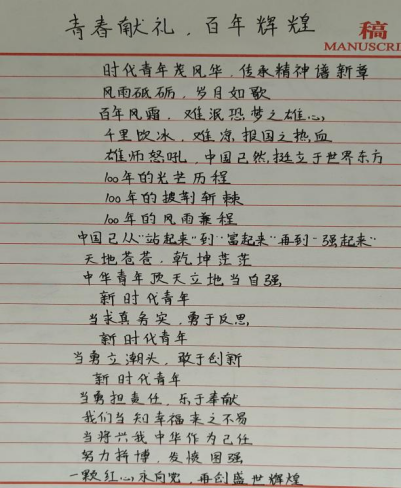 青春献礼，百年辉煌
稿
MANUSCRI
时代青年茂风华，传承精神谱新章
风雨砥砺，岁月如歌
百年风霜，难泯恐梦之雄心
千里饮冰，难凉报国之热血
雄师怒吼，中国已然挺立于世界东方
100年的光芒历程
100年的披荆斩棘
100年的风雨兼程
中国已从“站起来”到“富起来”再到“强起来”
天地苍苍，乾坤茫茫
中华青年顶天立地当自强
新时代青年
当求真务实，勇于反思
新时代青年
当勇立潮头，敢于创新
新时代青年
当勇担责任，乐于奉献
我们当知幸福来之不易
当将兴我中华作为己任
努力拼搏，发愤图强
一颗红心永向党，再创盛世辉煌